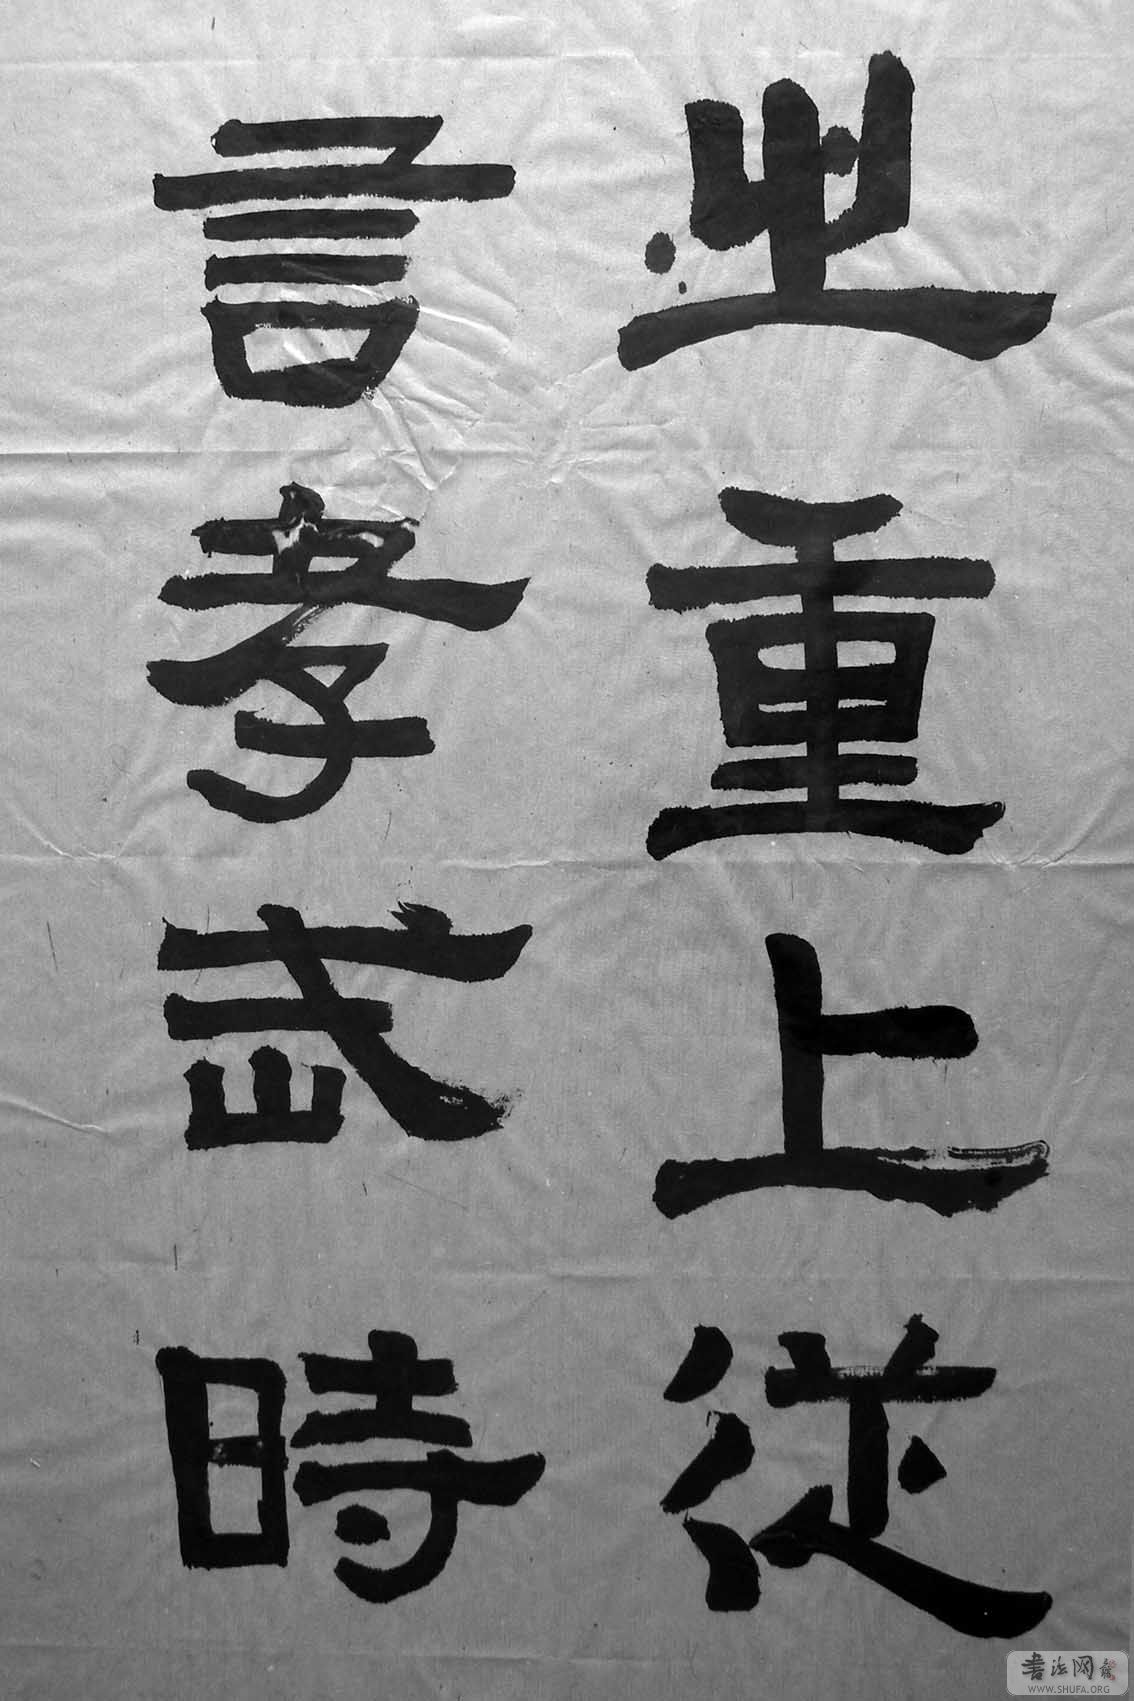 之重上從
言孝武時
書法网
WWW.SHUFA.ORG